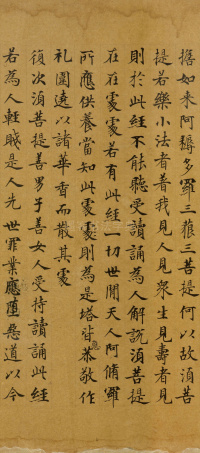 擔如來阿耨多羅三藐三菩提何以故湏菩
提若樂小法者著我見人見眾生見壽者見
則於此經不能聽受讀誦為人解說湏菩提
在在處處若有此經一切世間天人阿脩羅
所應供養當知此處處則為是塔皆恭敬作
礼圍遶以諸華香而散其處
復次湏菩提善男子善女人受持讀誦此經
若為人輕賤是人先世罪業應墮惡道以今